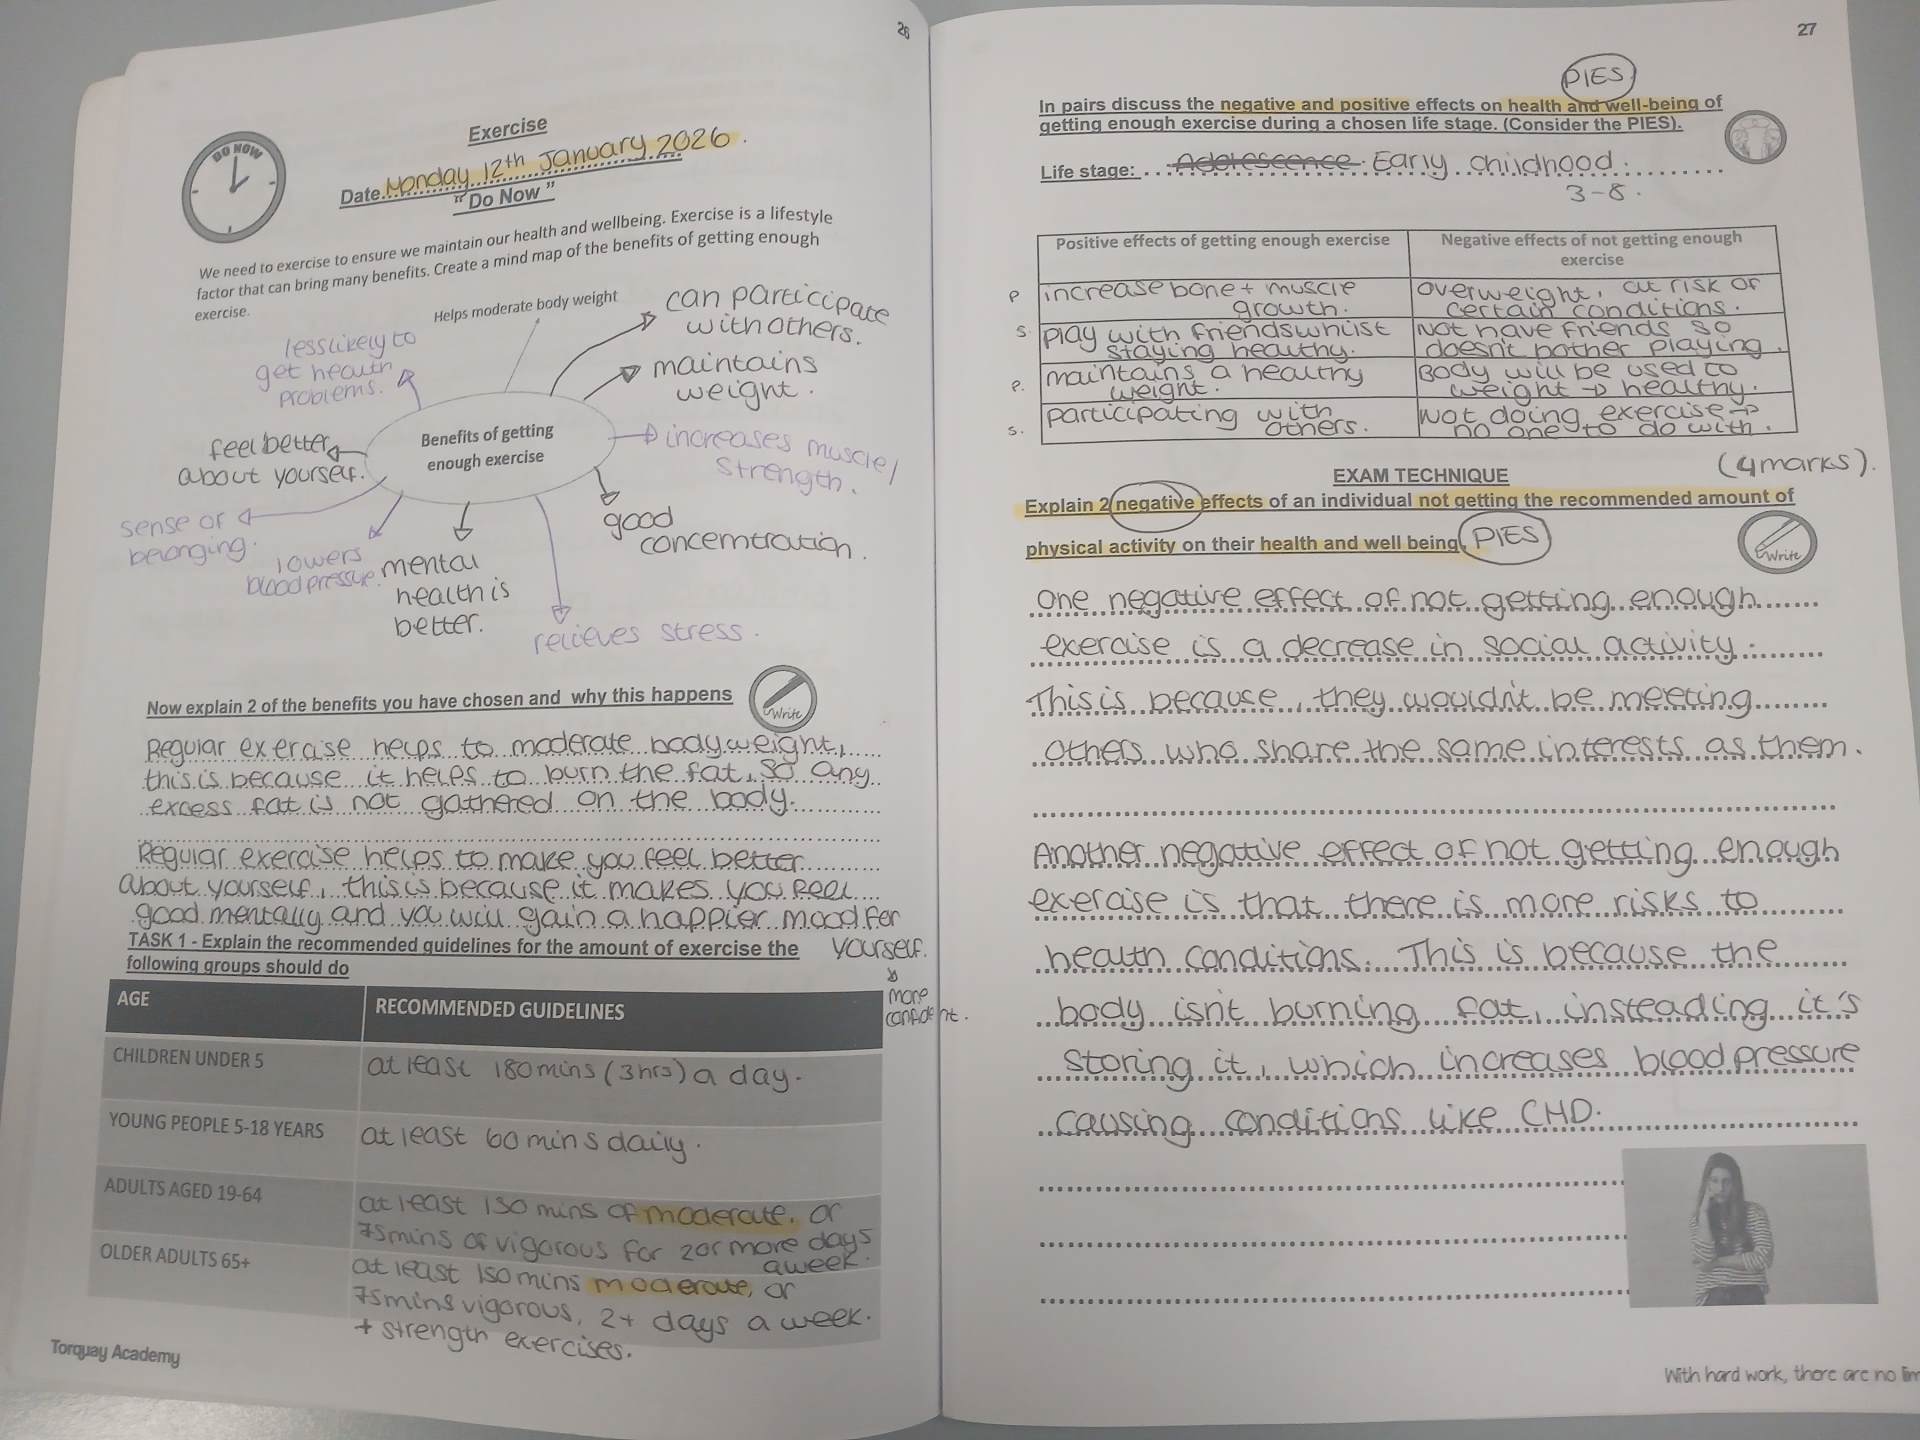 26
Exercise
DO NOW
Date Monday 12th January 2026.
"Do Now"
We need to exercise to ensure we maintain our health and wellbeing. Exercise is a lifestyle
factor that can bring many benefits. Create a mind map of the benefits of getting enough
exercise.
Helps moderate body weight
can participate
with others.
less likely to
get health
problems.
maintains
weight.
Benefits of getting
enough exercise
feel better
about yourself.
increases muscle/
strength.
sense of
belonging.
lowers
blood pressure.
mental
health is
better.
good
concemtration.
relieves stress.
Now explain 2 of the benefits you have chosen and why this happens
Write
Regular exercise helps to moderate body weight,
this is because it helps to burn the fat, so any
excess fat is not gathered on the body.
Regular exercise helps to make you feel better
about yourself, this is because it makes you feel
good mentally and you will gain a happier mood for
yourself.
more
confident.
TASK 1 - Explain the recommended guidelines for the amount of exercise the
following groups should do
AGE
RECOMMENDED GUIDELINES
CHILDREN UNDER 5
at least 180mins (3hrs) a day.
YOUNG PEOPLE 5-18 YEARS
at least 60 mins daily.
ADULTS AGED 19-64
at least 150 mins of moderate, or
75mins of vigorous for 2 or more days
a week.
OLDER ADULTS 65+
at least 150 mins moderate, or
75mins vigorous, 2+ days a week.
+ strength exercises.
Torquay Academy
27
PIES
In pairs discuss the negative and positive effects on health and well-being of
getting enough exercise during a chosen life stage. (Consider the PIES).
Life stage: Adolescence Early childhood.
3-8.
Positive effects of getting enough exercise
Negative effects of not getting enough
exercise
P
increase bone + muscle
growth.
overweight, at risk of
certain conditions.
S.
play with friends whilst
staying healthy.
Not have friends so
doesn't bother playing.
P.
maintains a healthy
weight.
Body will be used to
weight → healthy.
S.
participating with
others.
Not doing exercise →
no one to do with.
EXAM TECHNIQUE
(4 marks).
Explain 2 negative effects of an individual not getting the recommended amount of
physical activity on their health and well being. PIES
Write
One negative effect of not getting enough
exercise is a decrease in social activity.
This is because, they wouldn't be meeting
others who share the same interests as them.
Another negative effect of not getting enough
exercise is that there is more risks to
health conditions. This is because the
body isn't burning fat, insteading it's
storing it, which increases blood pressure
causing conditions like CHD.
With hard work, there are no lim